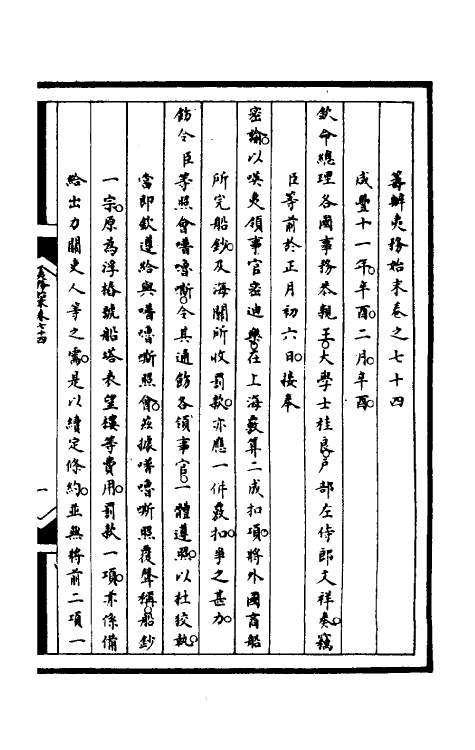 籌辦夷務始末卷之七十四
咸豐十一年。辛酉。二月。辛酉。
欽命總理各國事務恭親王。大學士桂良。戶部左侍郎文祥奏。竊
臣等前於正月初六日。接奉
密諭。以㖫夷領事官密迪樂。在上海覈算二成扣項。將外國商船
所完船鈔。及海關所收罰款。亦應一併覈扣。爭之甚力。
飭令臣等照會㗝嚕嘶。令其通飭各領事官。一體遵照。以杜狡執。
當即欽遵給與㗝嚕嘶照會。茲據㗝嚕嘶照覆聲稱。船鈔
一宗。原為浮樁號船塔表望樓等費用。罰款一項。亦係備
給出力關吏人等之需。是以續定條約。並無將前二項一